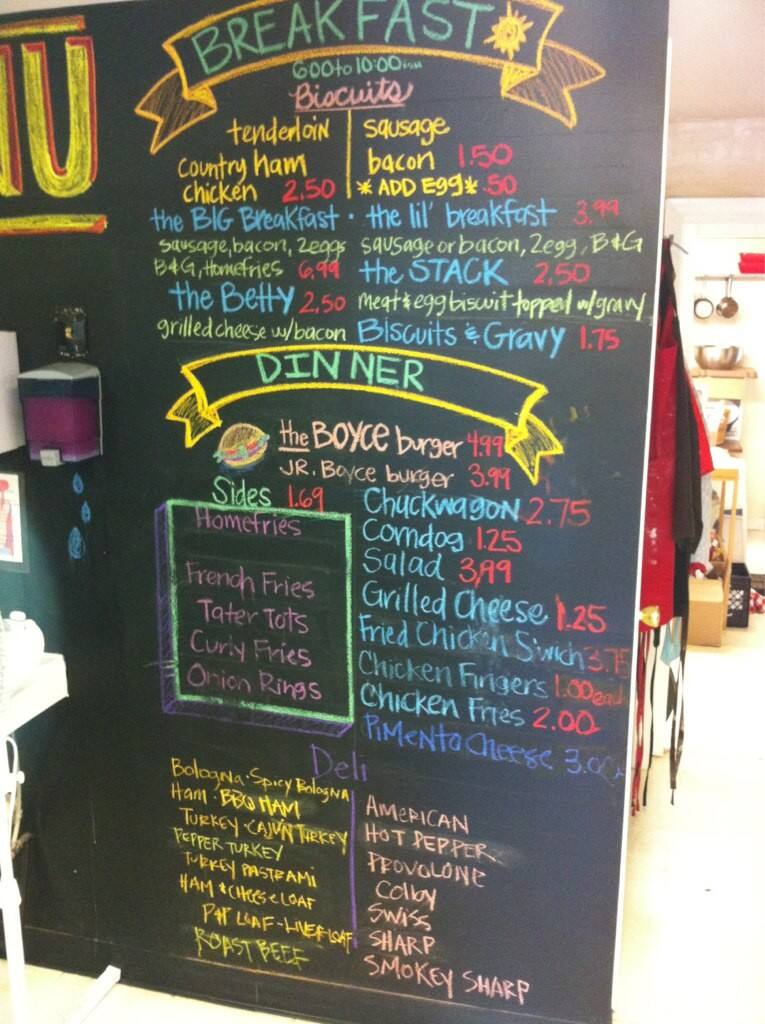 NU
BREAKFAST
600 to 10:00am
Biscuits
tenderloin
country ham
chicken 2.50
sausage
bacon 1.50
* ADD Egg * .50
the BIG Breakfast · the lil' breakfast 3.99
sausage, bacon, 2eggs
B&G, Homefries 6.99
sausage or bacon, 2egg, B&G
the STACK 2.50
the Betty 2.50
meat & egg biscuit topped w/gravy
grilled cheese w/bacon
Biscuits & Gravy 1.75
DINNER
the BOYCE burger 4.99
JR. Boyce burger 3.99
Sides 1.69
Homefries
French Fries
Tater Tots
Curly Fries
Onion Rings
Chuckwagon 2.75
Corndog 1.25
Salad 3,99
Grilled Cheese 1.25
Fried Chicken S'wich 3.75
Chicken Fingers 1.00
Chicken Fries 2.00
PiMeNto Cheese 3.00
Deli
Bologna · Spicy Bologna
Ham · BBQ HAM
TURKEY · CAJUN TURKEY
PEPPER TURKEY
TURKEY PASTRAMI
HAM & CHEESE LOAF
P&P LOAF - LIVER LOAF
ROAST BEEF
AMERICAN
HOT PEPPER
PROVOLONE
Colby
SWISS
SHARP
SMOKEY SHARP